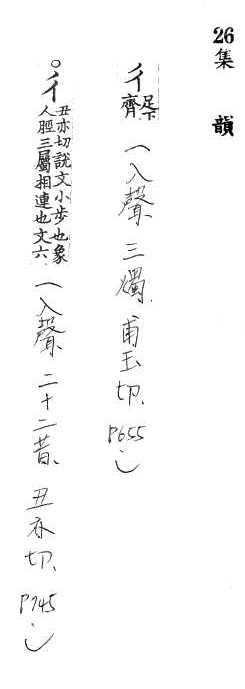 26集韻
彳足下齊(入聲三燭、甫玉切、P655)
○彳丑亦切說文小步也象人脛三屬相連也文六(入聲、二十二昔、丑亦切、P745)